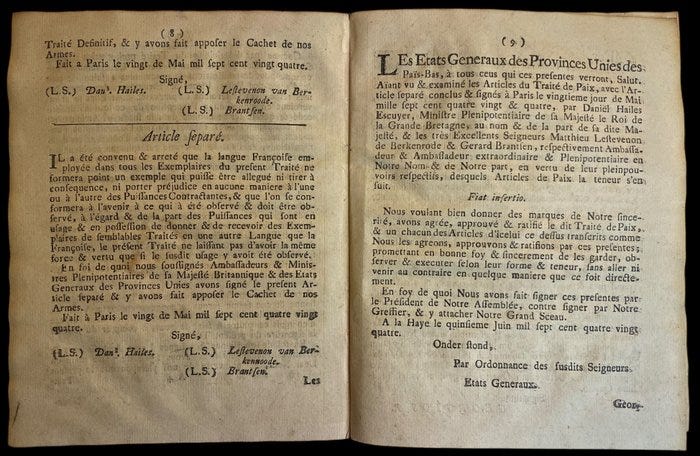 ( 8 )
Traité Definitif, & y avons fait apposer le Cachet de nos
Armes.
Fait a Paris le vingt de Mai mil sept cent vingt quatre.
Signé,
(L. S.) Danˡ. Hailes. (L. S.) Lestevenon van Ber-
kenroode.
(L. S.) Brantsen.
Article separé.
IL a été convenu & arreté que la langue Françoise em-
ployée dans tous les Exemplaires du present Traité ne
formera point un exemple qui puisse être allegué ni tirer à
consequence, ni porter préjudice en aucune maniere à l'une
ou à l'autre des Puissances Contractantes, & que l'on se con-
formera à l'avenir à ce qui à été observé & doit être ob-
servé, à l'égard & de la part des Puissances qui sont en
usage & en possession de donner & de recevoir des Exem-
plaires de semblables Traités en une autre Langue que la
Françoise, le présent Traité ne laissant pas d'avoir la même
force & vertu que si le susdit usage y avoit été observé.
En foi de quoi nous soussignés Ambassadeurs & Minis-
tres Plenipotentiaires de sa Majesté Britannique & des Etats
Generaux des Provinces Unies avons signé le present Ar-
ticle separé & y avons fait apposer le Cachet de nos
Armes.
Fait à Paris le vingt de Mai mil sept cent quatre vingt
quatre.
Signé,
(L. S.) Danˡ. Hailes. (L. S.) Lestevenon van Ber-
kennoode.
(L. S.) Brantsen.
Les
( 9 )
LEs Etats Generaux des Provinces Unies des
Païs-Bas, à tous ceux qui ces presentes verront, Salut.
Aïant vu & examiné les Articles du Traité de Paix, avec l'Ar-
ticle separé conclus & signés à Paris le vingtieme jour de Mai
mille sept cent quatre vingt & quatre, par Daniël Hailes
Escuyer, Ministre Plenipotentiaire de sa Majesté le Roi de
la Grande Bretagne, au nom & de la part de sa dite Ma-
jesté, & les très Excellents Seigneurs Matthieu Lestevenon
de Berkenrode & Gerard Brantsen, respectivement Ambassa-
deur & Ambassadeur extraordinaire & Plenipotentiaire en
Notre Nom & de Notre part, en vertu de leur pleinpou-
voirs respectifs, desquels Articles de Paix la teneur s'en
suit.
Fiat insertio.
Nous voulant bien donner des marques de Notre since-
rité, avons agréé, approuvé & ratifié le dit Traité de Paix,
& un chacun des Articles d'icelui ce dessus transcrits comme
Nous les agreons, approuvons & ratifions par ces presentes;
promettant en bonne foy & sincerement de les garder, ob-
server & executer selon leur forme & teneur, sans aller ni
venir au contraire en quelque maniere que ce soit directe-
ment.
En foy de quoi Nous avons fait signer ces presentes par
le Président de Notre Assemblée, contre signer par Notre
Greffier, & y attacher Notre Grand Sceau.
A la Haye le quinsieme Juin mil sept cent quatre vingt
quatre.
Onder stond,
Par Ordonnance des susdits Seigneurs
Etats Generaux.
Geor-